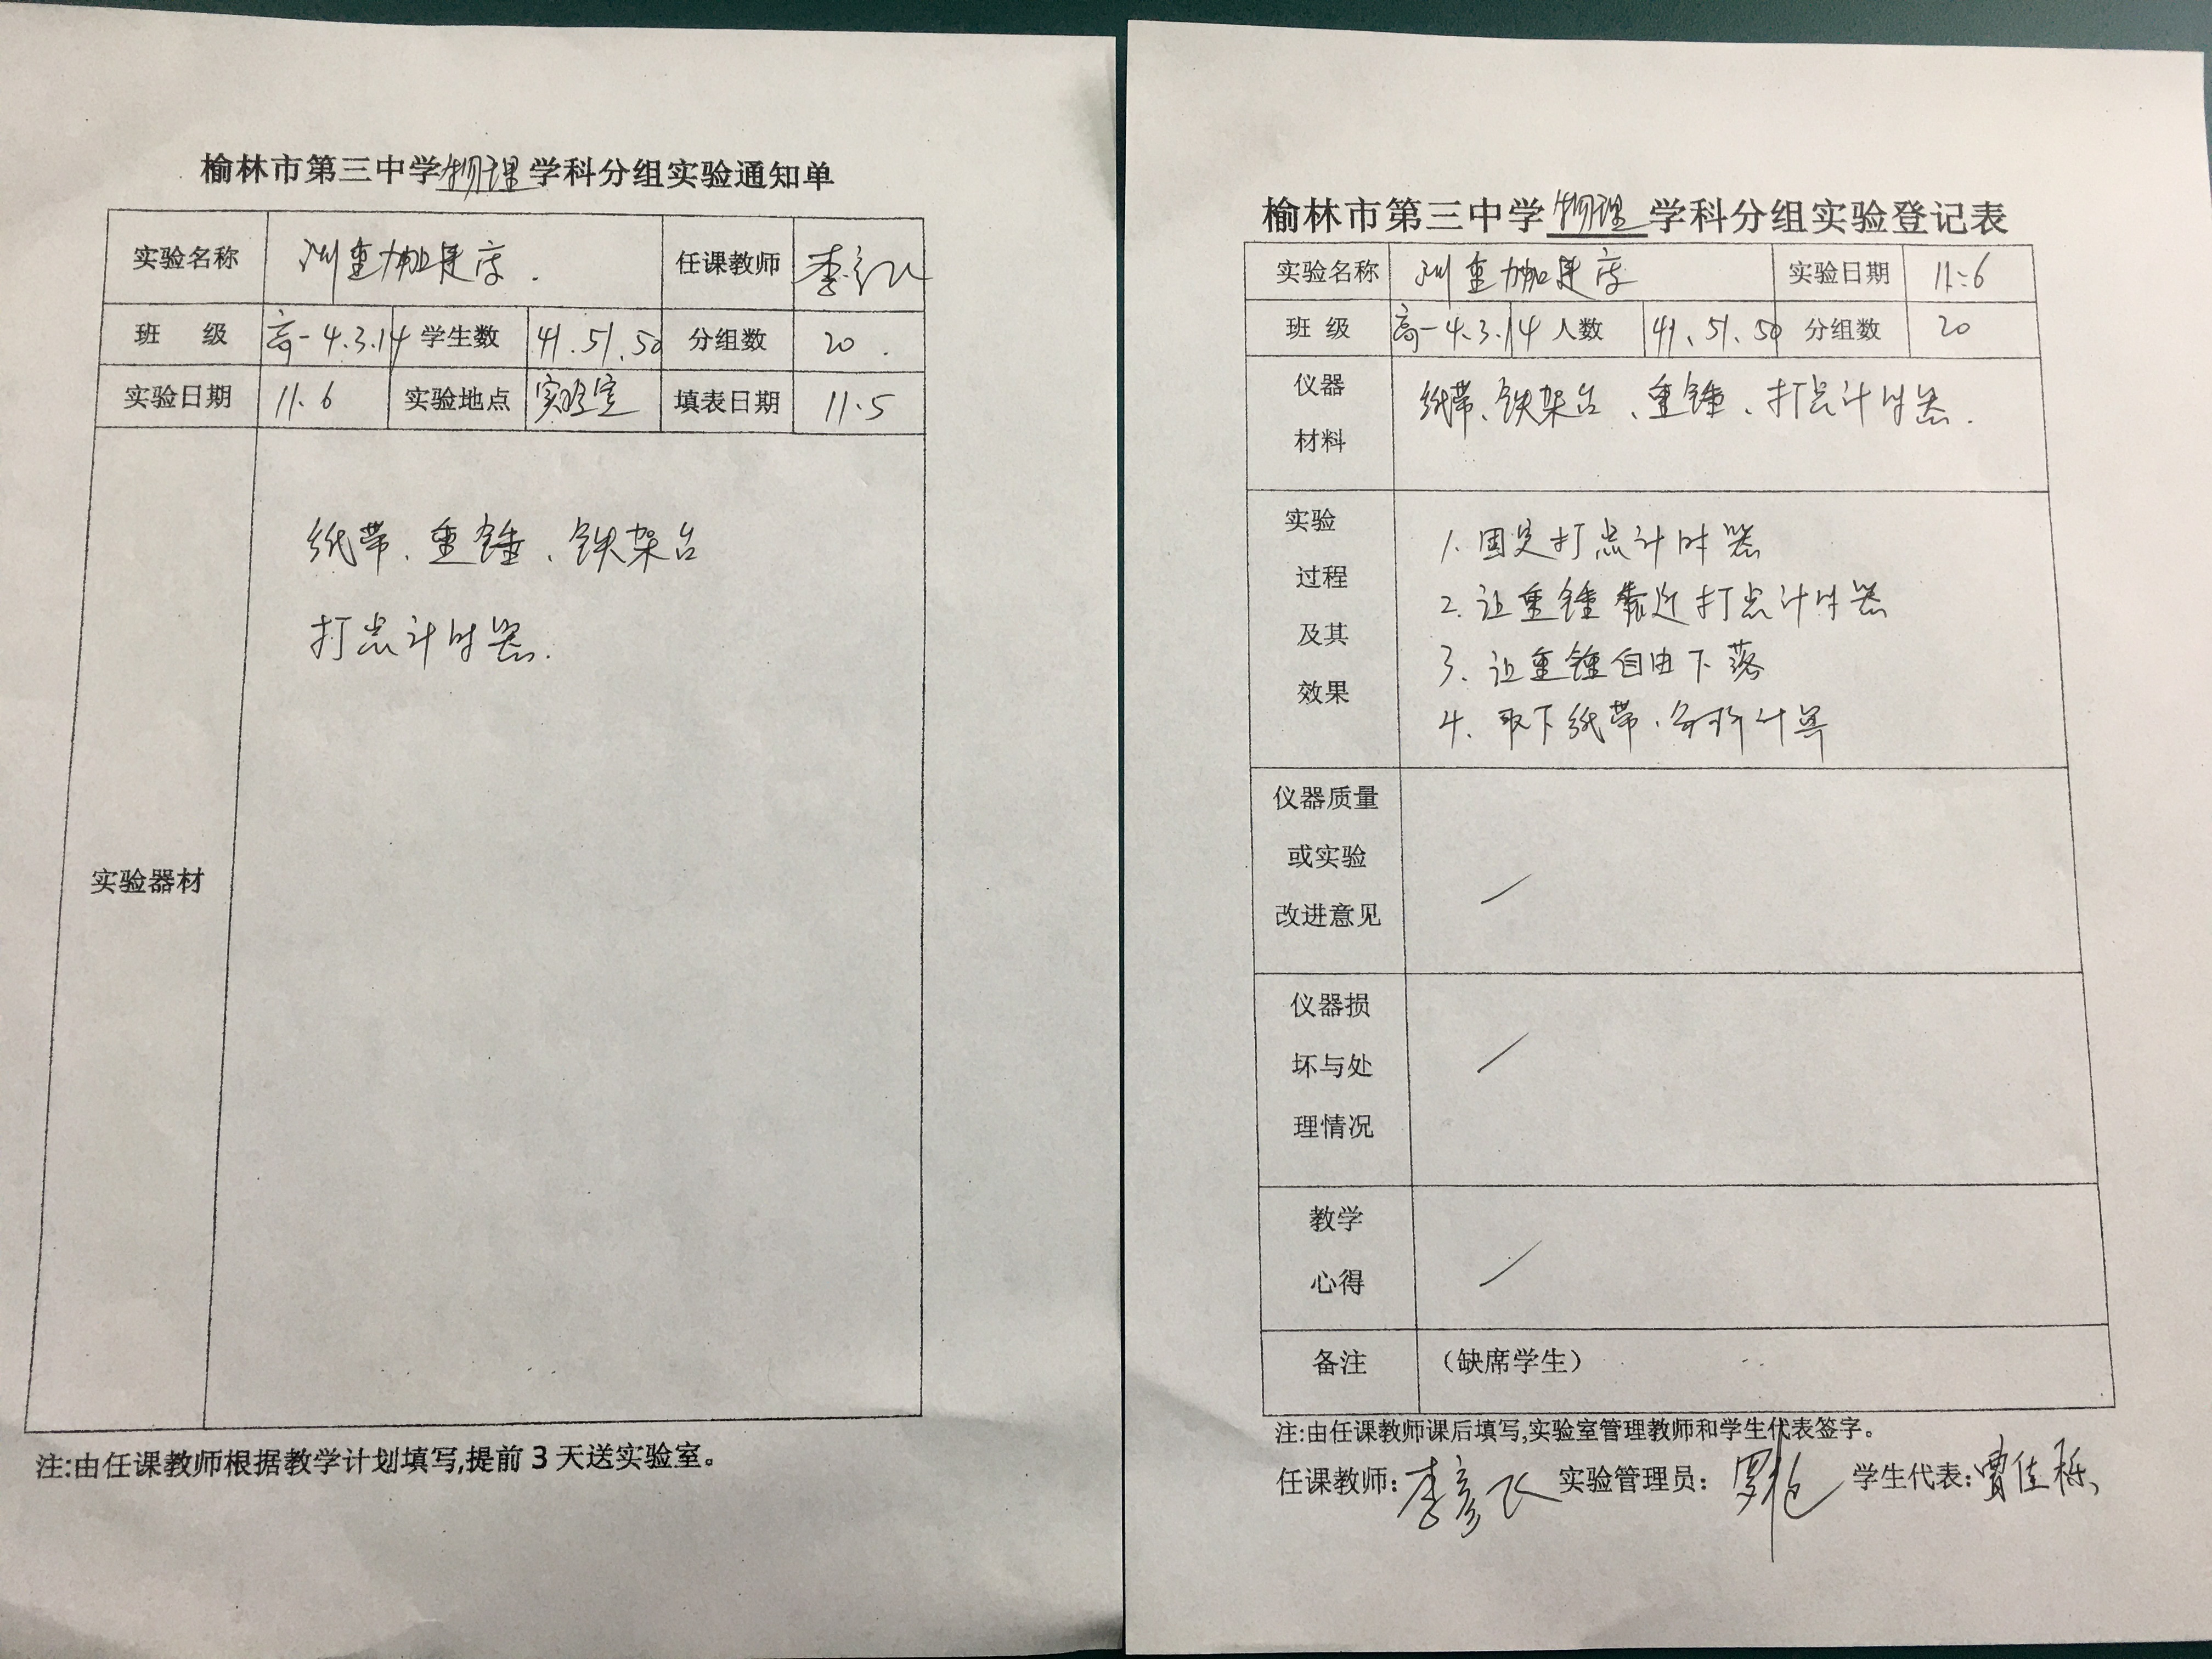 榆林市第三中学物理学科分组实验通知单
实验名称 测重力加速度. 任课教师 李彦飞
班 级 高一4.3.14 学生数 41.51.50 分组数 20.
实验日期 11.6 实验地点 实验室 填表日期 11.5
实验器材
纸带、重锤、铁架台
打点计时器.
注:由任课教师根据教学计划填写,提前3天送实验室。
榆林市第三中学物理学科分组实验登记表
实验名称 测重力加速度 实验日期 11.6
班 级 高一4.3.14 人数 41、51、50 分组数 20
仪器
材料
纸带、铁架台、重锤、打点计时器.
实验
过程
及其
效果
1. 固定打点计时器
2. 让重锤靠近打点计时器
3、让重锤自由下落
4、取下纸带、分析计算
仪器质量
或实验
改进意见
仪器损
坏与处
理情况
教学
心得
备注 (缺席学生)
注:由任课教师课后填写,实验室管理教师和学生代表签字。
任课教师:李彦飞 实验管理员: 学生代表:贾佳栎